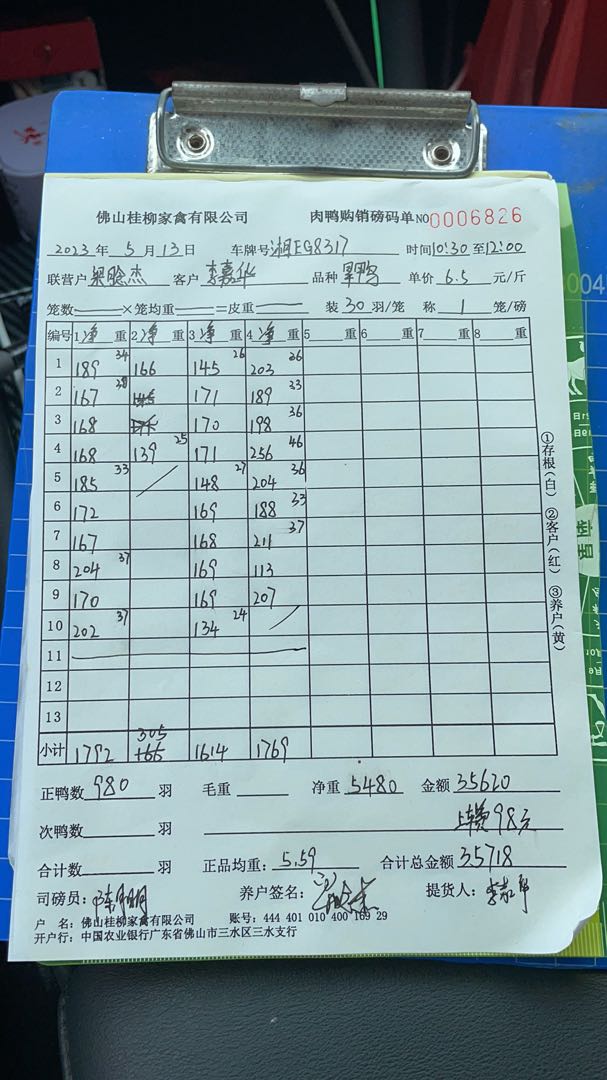 佛山桂柳家禽有限公司 肉鸭购销磅码单 NO 0006826
2023 年 5 月 13 日 车牌号 湘EG8317 时间 10:30 至 12:00
联营户 客户 李嘉华 品种 旱鸭 单价 6.5 元/斤
笼数 ×笼均重 =皮重 装 30 羽/笼 称 1 笼/磅
编号 1 净 重 2 净 重 3 净 重 4 净 重 5 重 6 重 7 重 8 重
1 189 34 166 145 26 203 36
2 167 28 171 189 33
3 168 170 198 36
4 168 139 25 171 256 46
5 185 33 148 27 204 36
6 172 169 188 33
7 167 168 211 37
8 204 37 169 113
9 170 169 207
10 202 37 134 24
11
12
13
小计 1792 305 1614 1769
正鸭数 980 羽 毛重 净重 5480 金额 35620
次鸭数 羽 上车费 98元
合计数 羽 正品均重: 5.59 合计总金额 35718
司磅员: 养户签名: 提货人:
户 名: 佛山桂柳家禽有限公司 账号: 444 401 010 400 169 29
开户行: 中国农业银行广东省佛山市三水区三水支行
①存根(白) ②客户(红) ③养户(黄)